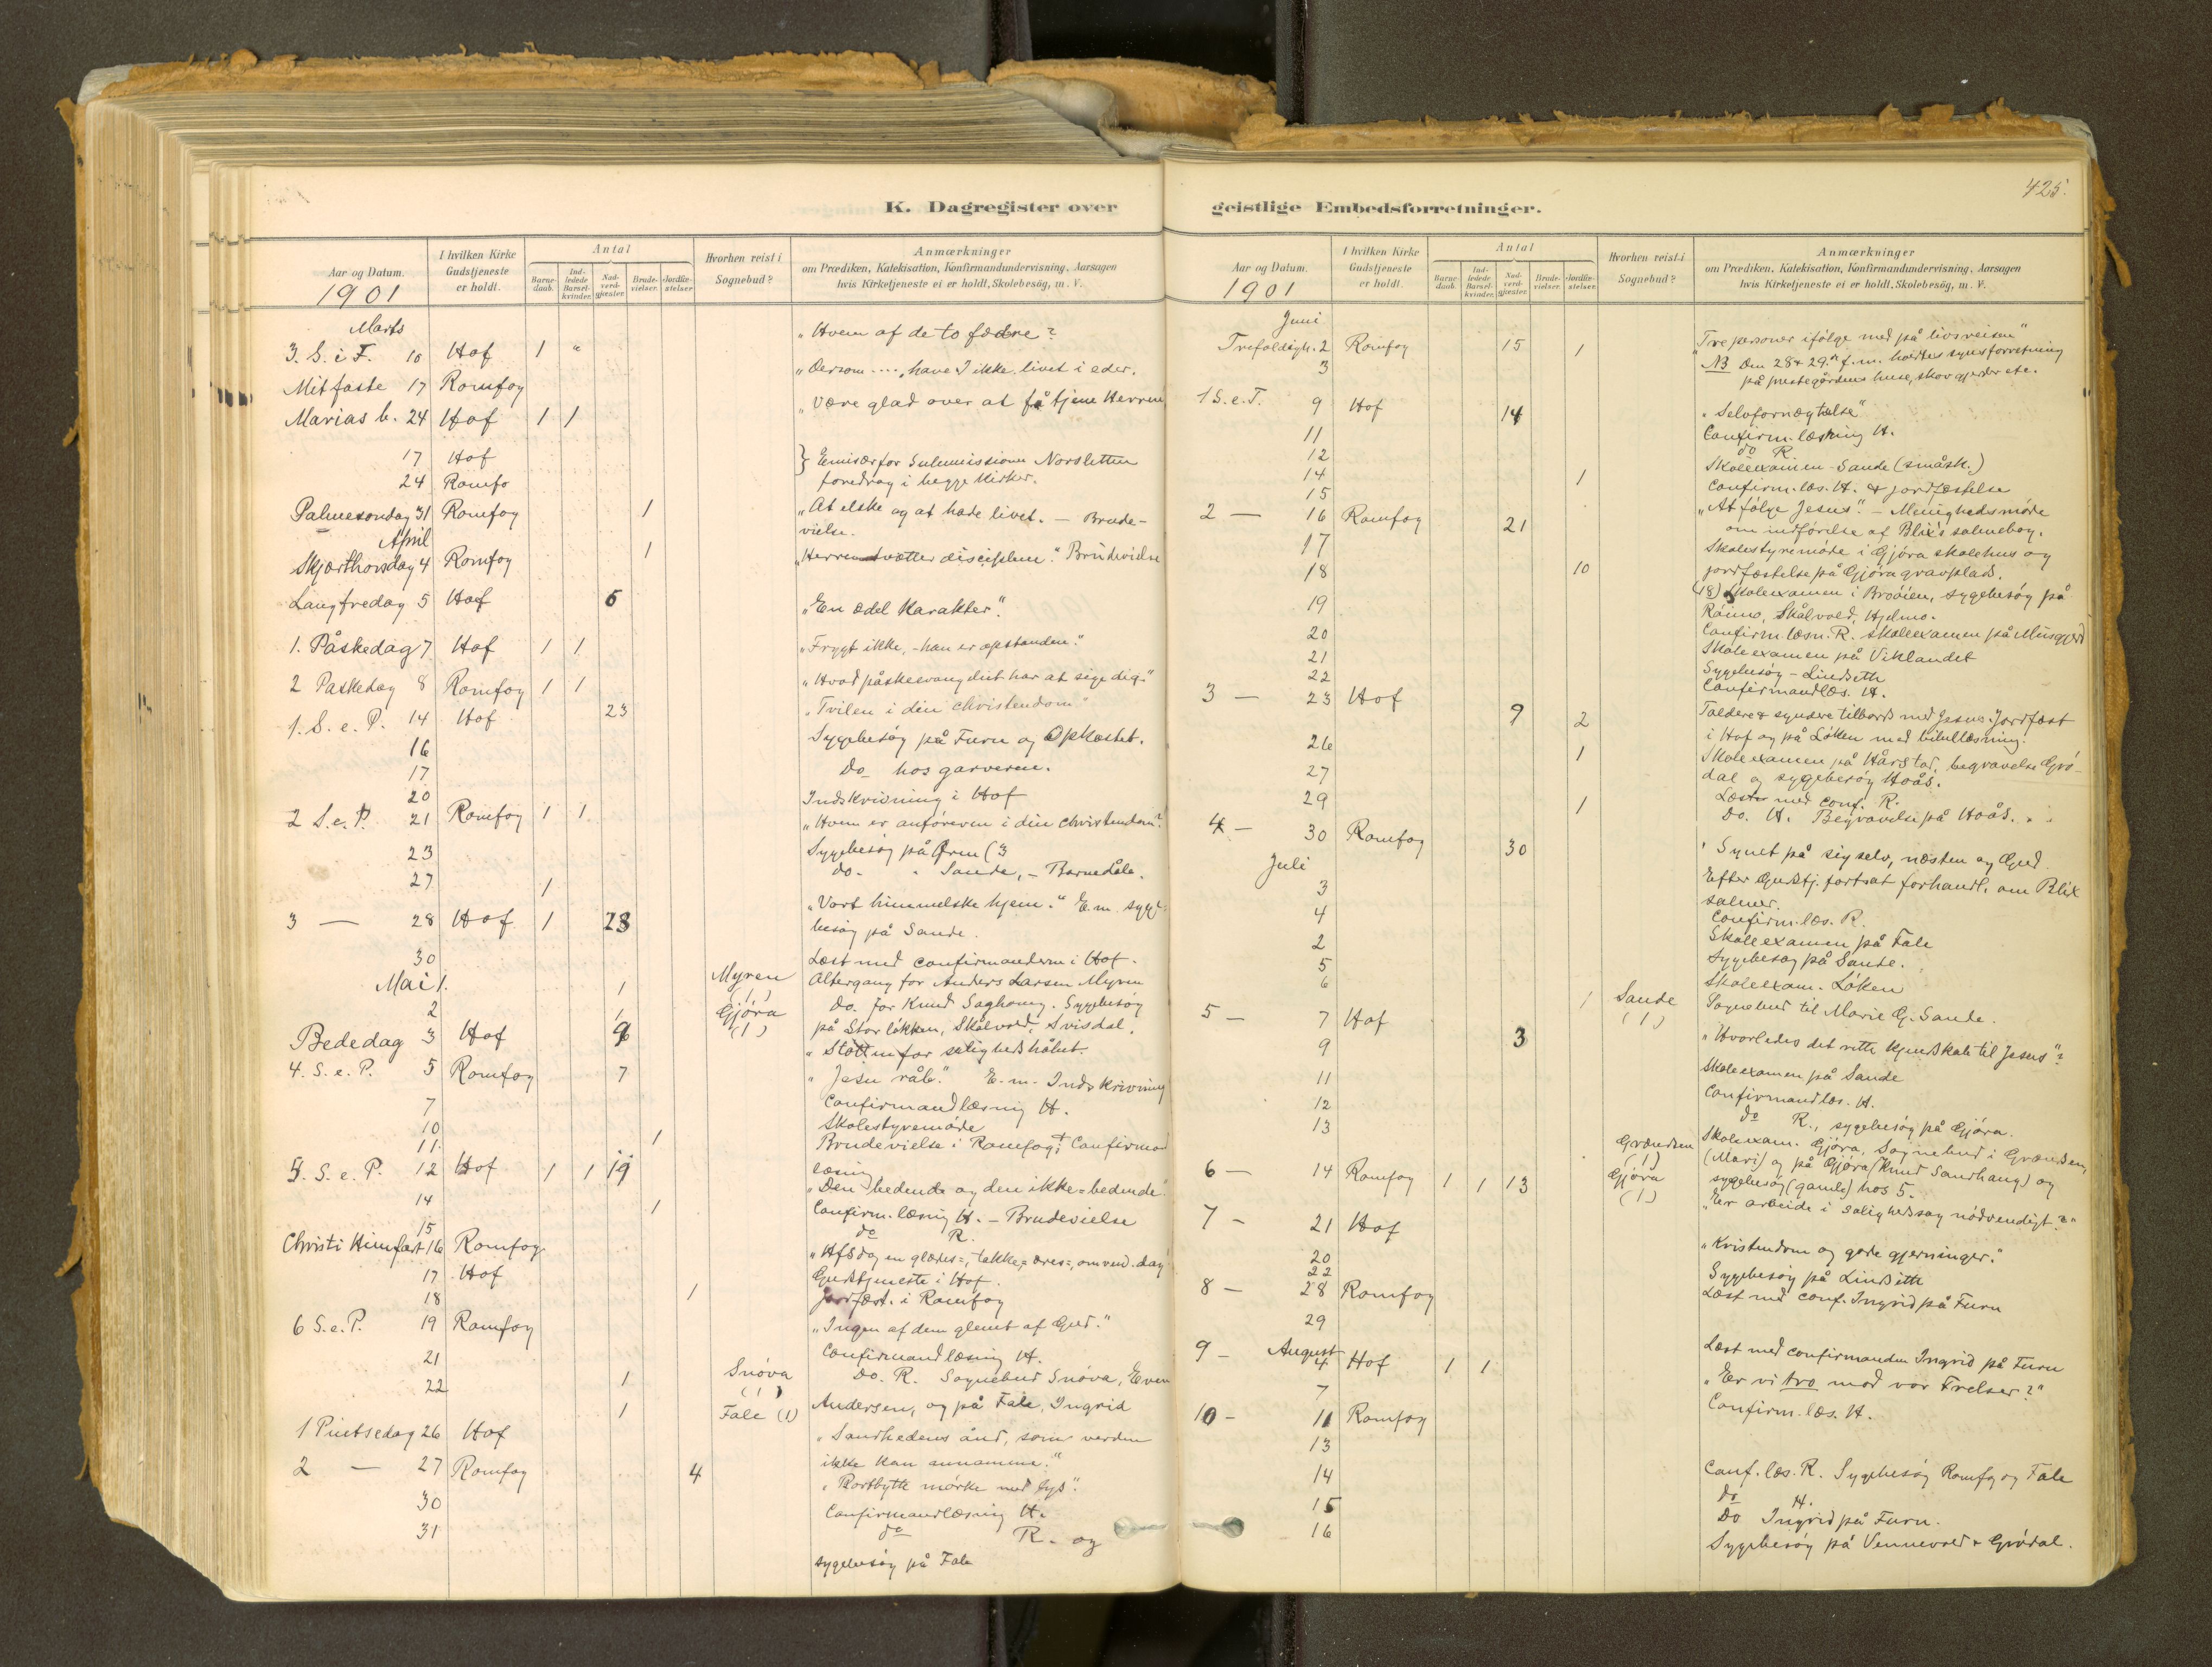 K. Dagregister over
Aar og Datum. 1901
I hvilken Kirke Gudstjeneste er holdt.
Antal
Barnedaab. Indledede Barselkvinder. Nadverdgjæster. Brudevielser. Jordfæstelser
Hvorhen reist i Sognebud?
Anmærkninger
om Prædiken, Katekisation, Konfirmandundervisning, Aarsagen
hvis Kirketjeneste ei er holdt, Skolebesög, m. V.
Marts
3. S. i F. 10 Hof 1 " „Hvem af de to fædre?
Mitfaste 17 Romfog „Dersom .... have I ikke livet i eder.
Marias b. 24 Hof 1 1 „Være glad over at få tjene Herren
17 Hof } Emisær for
24 Romfo foredrag i begge kirker.
Palmesondag 31 Romfog 1 „At elske og at hade livet. — Brude-
vielse.
April
Skjærthorsdag 4 Romfog 1 „Herren tvætter disciplene." Brudevielse
Langfredag 5 Hof 6 „En ædel Karakter".
1. Påskedag 7 Hof 1 1 „Frygt ikke, - han er opstanden."
2 Paskedag 8 Romfog 1 1 „Hvad påskeevangeliet har at sige dig."
1. S. e. P. 14 Hof 23 „Tvilen i din christendom"
16 Sygebesög på Furu og Opkastet.
17 Do hos garveren.
20 Indskrivning i Hof
2 S. e. P. 21 Romfog 1 1 „Hvem er anföreren i din christendom?
23 Sygebesög på Øren (3
27 1 do. " Sande, - Barnedåb.
3 — 28 Hof 1 23 „Vort himmelske hjem." E.m. syge-
besög på Sande.
30 Læst med confirmanderne i Hof.
Mai 1. 1 Myren (1) Altergang for Anders Larsen Myren
2 1 Gjöra (1) do. for Knud Saghaug. Sygebesög
på Storløkken, Skålvold, Svisdal.
Bededag 3 Hof 9 „Stötten for salighedshåbet.
4. S. e. P. 5 Romfog 7 „Jesu råb." E.m. Indskrivning
7 Confirmandlæsning H.
10 Skolestyremöde
11. 1 Brudevielse i Romfog + Confirmand
læsning
5. S. e. P. 12 Hof 1 1 19 „Den bedende og den ikke-bedende".
14 1 Confirm. læsning H. - Brudevielse
15 do R.
Christi Himfart 16 Romfog „Hfsdag en glædes-, takke-, æres-, omvend. dag
17 Hof Gudstjeneste i Hof.
18 1 Jordfæst. i Romfog
6 S. e. P. 19 Romfog „Ingen af dem glemt af Gud."
21 Confirmandlæsning H.
22 1 Snöva (1) Do. R. Sognebud Snöva, Even
1 Fale (1) Andersen, og på Fale, Ingrid
1 Pintsedag 26 Hof „Sandhedens ånd, som verden
ikke kan annamme."
2 — 27 Romfog 4 „Bortbytte mörke med lys".
30 Confirmandlæsning H.
31 do R. og
sygebesög på Fale
425.
geistlige Embedsforretninger.
Aar og Datum. 1901
I hvilken Kirke Gudstjeneste er holdt.
Antal
Barnedaab. Indledede Barselkvinder. Nadverdgjæster. Brudevielser. Jordfæstelser.
Hvorhen reist i Sognebud?
Anmærkninger
om Prædiken, Katekisation, Konfirmandundervisning, Aarsagen
hvis Kirketjeneste ei er holdt, Skolebesög, m. V.
Juni
Trefoldigh. 2 Romfog 15 1 „Tre personer ifölge med på livsreisen"
3 NB Den 28 & 29de f.m. holdtes synsforretning
på prestegårdens huse, skovgjerder etc.
1 S. e. T. 9 Hof 14 „Selvfornægtelse".
11 Confirm. læsning H.
12 do R.
14 Skoleexamen Sande (småsk.)
15 1 Confirm. læs. H. & jordfæstelse
2 — 16 Romfog 21 „At følge Jesus". - Menighedsmöde
om indförelse af Blix's salmebog.
17 Skolestyremöde i Gjöra skolehus og
18 10 jordfæstelse på Gjöra gravplads.
19 (18) Skoleexamen i Broöien, sygebesög på
Röimo, Skålvold, Hjelmo.
20 Confirm. læsn. R. skoleexamen på Musgjerd
21 Skoleexamen på Viklandet
22 Sygebesög - Lindseth
Confirmandlæs. H.
3 — 23 Hof 9 2 Toldere & syndere tilbords med Jesus. Jordfæst
i Hof og på Løken med bibellæsning.
26 1 Skoleexamen på Hårstad, begravelse Grö-
27 dal og sygebesög Hoås.
29 1 Læste med conf. R.
Do. H. Begravelse på Hoås.
4 - 30 Romfog 30 „Synet på sig selv, næsten og Gud.
Juli
Efter Gudstj. fortsat forhandl. om Blix
salmer.
3 Confirm. læs. R.
4 Skoleexamen på Fale
2 Sygebesög på Sande.
5 Skoleexam. Løken
6 1 Sande (1) Sognebud til Marie G. Sande.
5 - 7 Hof 3 „Hvorledes det rette kjendskab til Jesus"?
9 Skoleexamen på Sande
11 Confirmandlæs. H.
12 do R., sygebesög på Gjöra.
13 Grændsen (1) Skoleexam. Gjöra, Sognebud i Grændsen,
Gjöra (1) (Mari) og på Gjöra (Knud Sandhaug) og
sygebesög (gamle) hos 5.
6 - 14 Romfog 1 1 13 „Er arbeide i salighedssag nödvendigt?"
7 - 21 Hof „Kristendom og gode gjerninger."
20 Sygebesög på Lindseth
22 Læst med conf. Ingrid på Furu
8 - 28 Romfog
29 Læst med confirmanden Ingrid på Furu
August
9 - 4 Hof 1 1 „Er vi tro mod vor Frelser?"
7 Confirm. læs. H.
10 - 11 Romfog
13 Conf. læs. R. Sygebesög Romfog og Fale
14 do H.
15 Do Ingrid på Furu.
16 Sygebesög på Vennevold & Grödal.